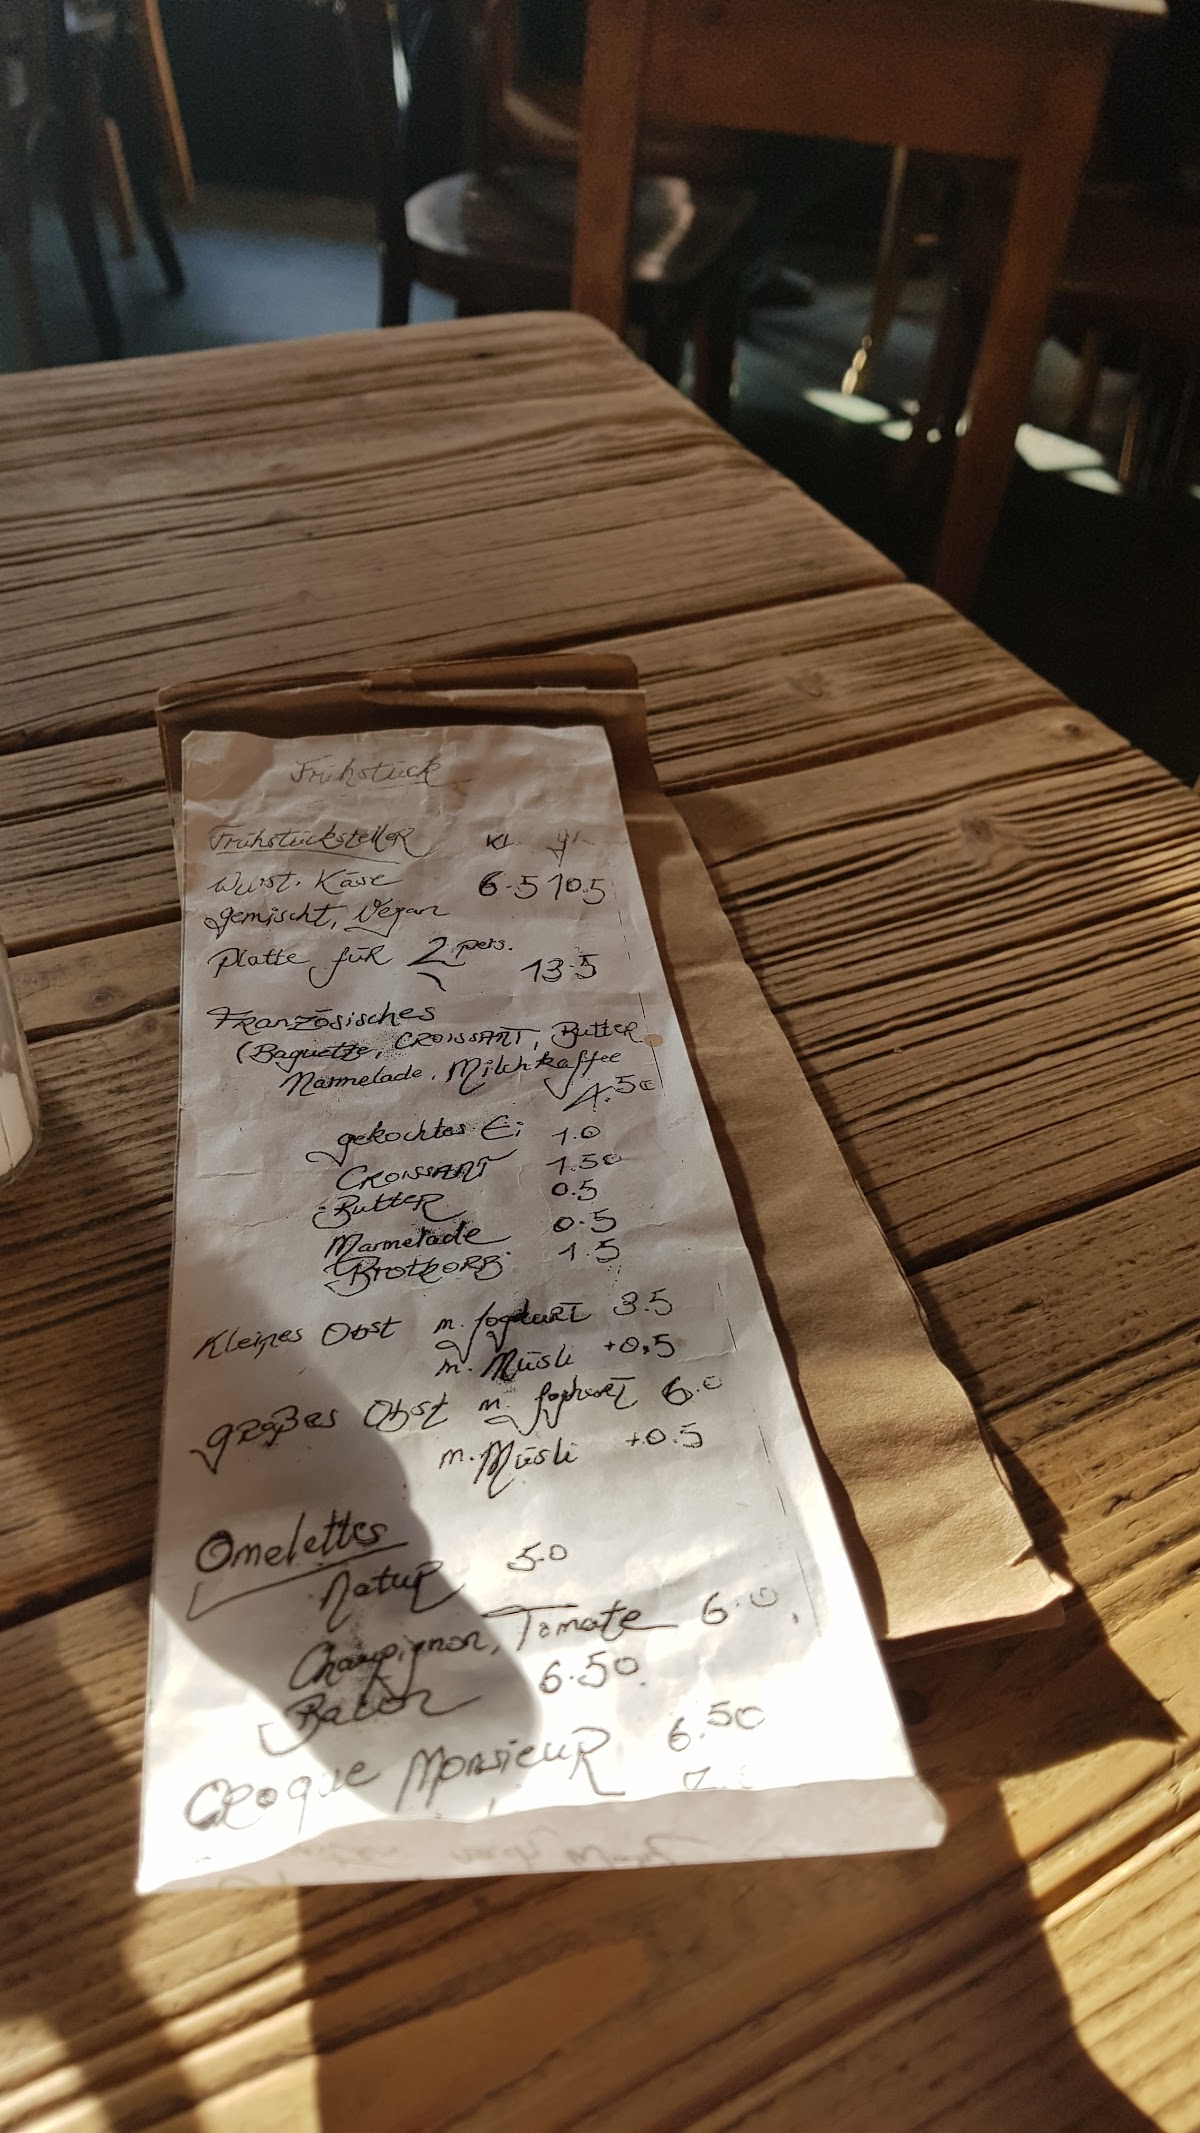 Frühstück
Frühstücksteller Kl. gr.
Wurst, Käse 6.5 10.5
gemischt, Vegan
Platte für 2 pers. 13.5
Französisches
(Baguette, Croissant, Butter
Marmelade, Milchkaffee
4.50
gekochtes Ei 1.0
Croissant 1.50
Butter 0.5
Marmelade 0.5
Brotkorb 1.5
Kleines Obst m. Joghurt 3.5
m. Müsli +0,5
großes Obst m. Joghurt 6.0
m. Müsli +0.5
Omelettes
Natur 5.0
Champignon, Tomate 6.0
Bacon 6.50
Croque Monsieur 6.50